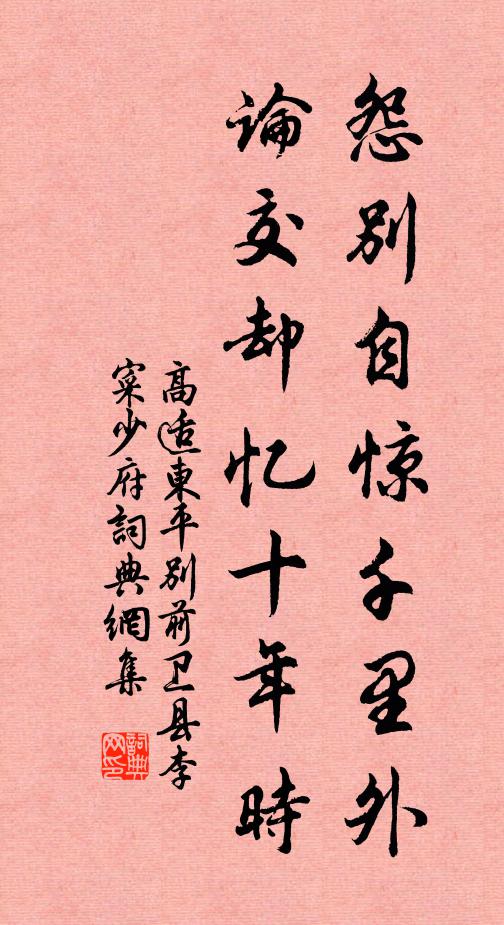 怨别自惊千里外
論交却忆十年時
高適東平别前卫县李
寀少府詞典網集
詞典网印